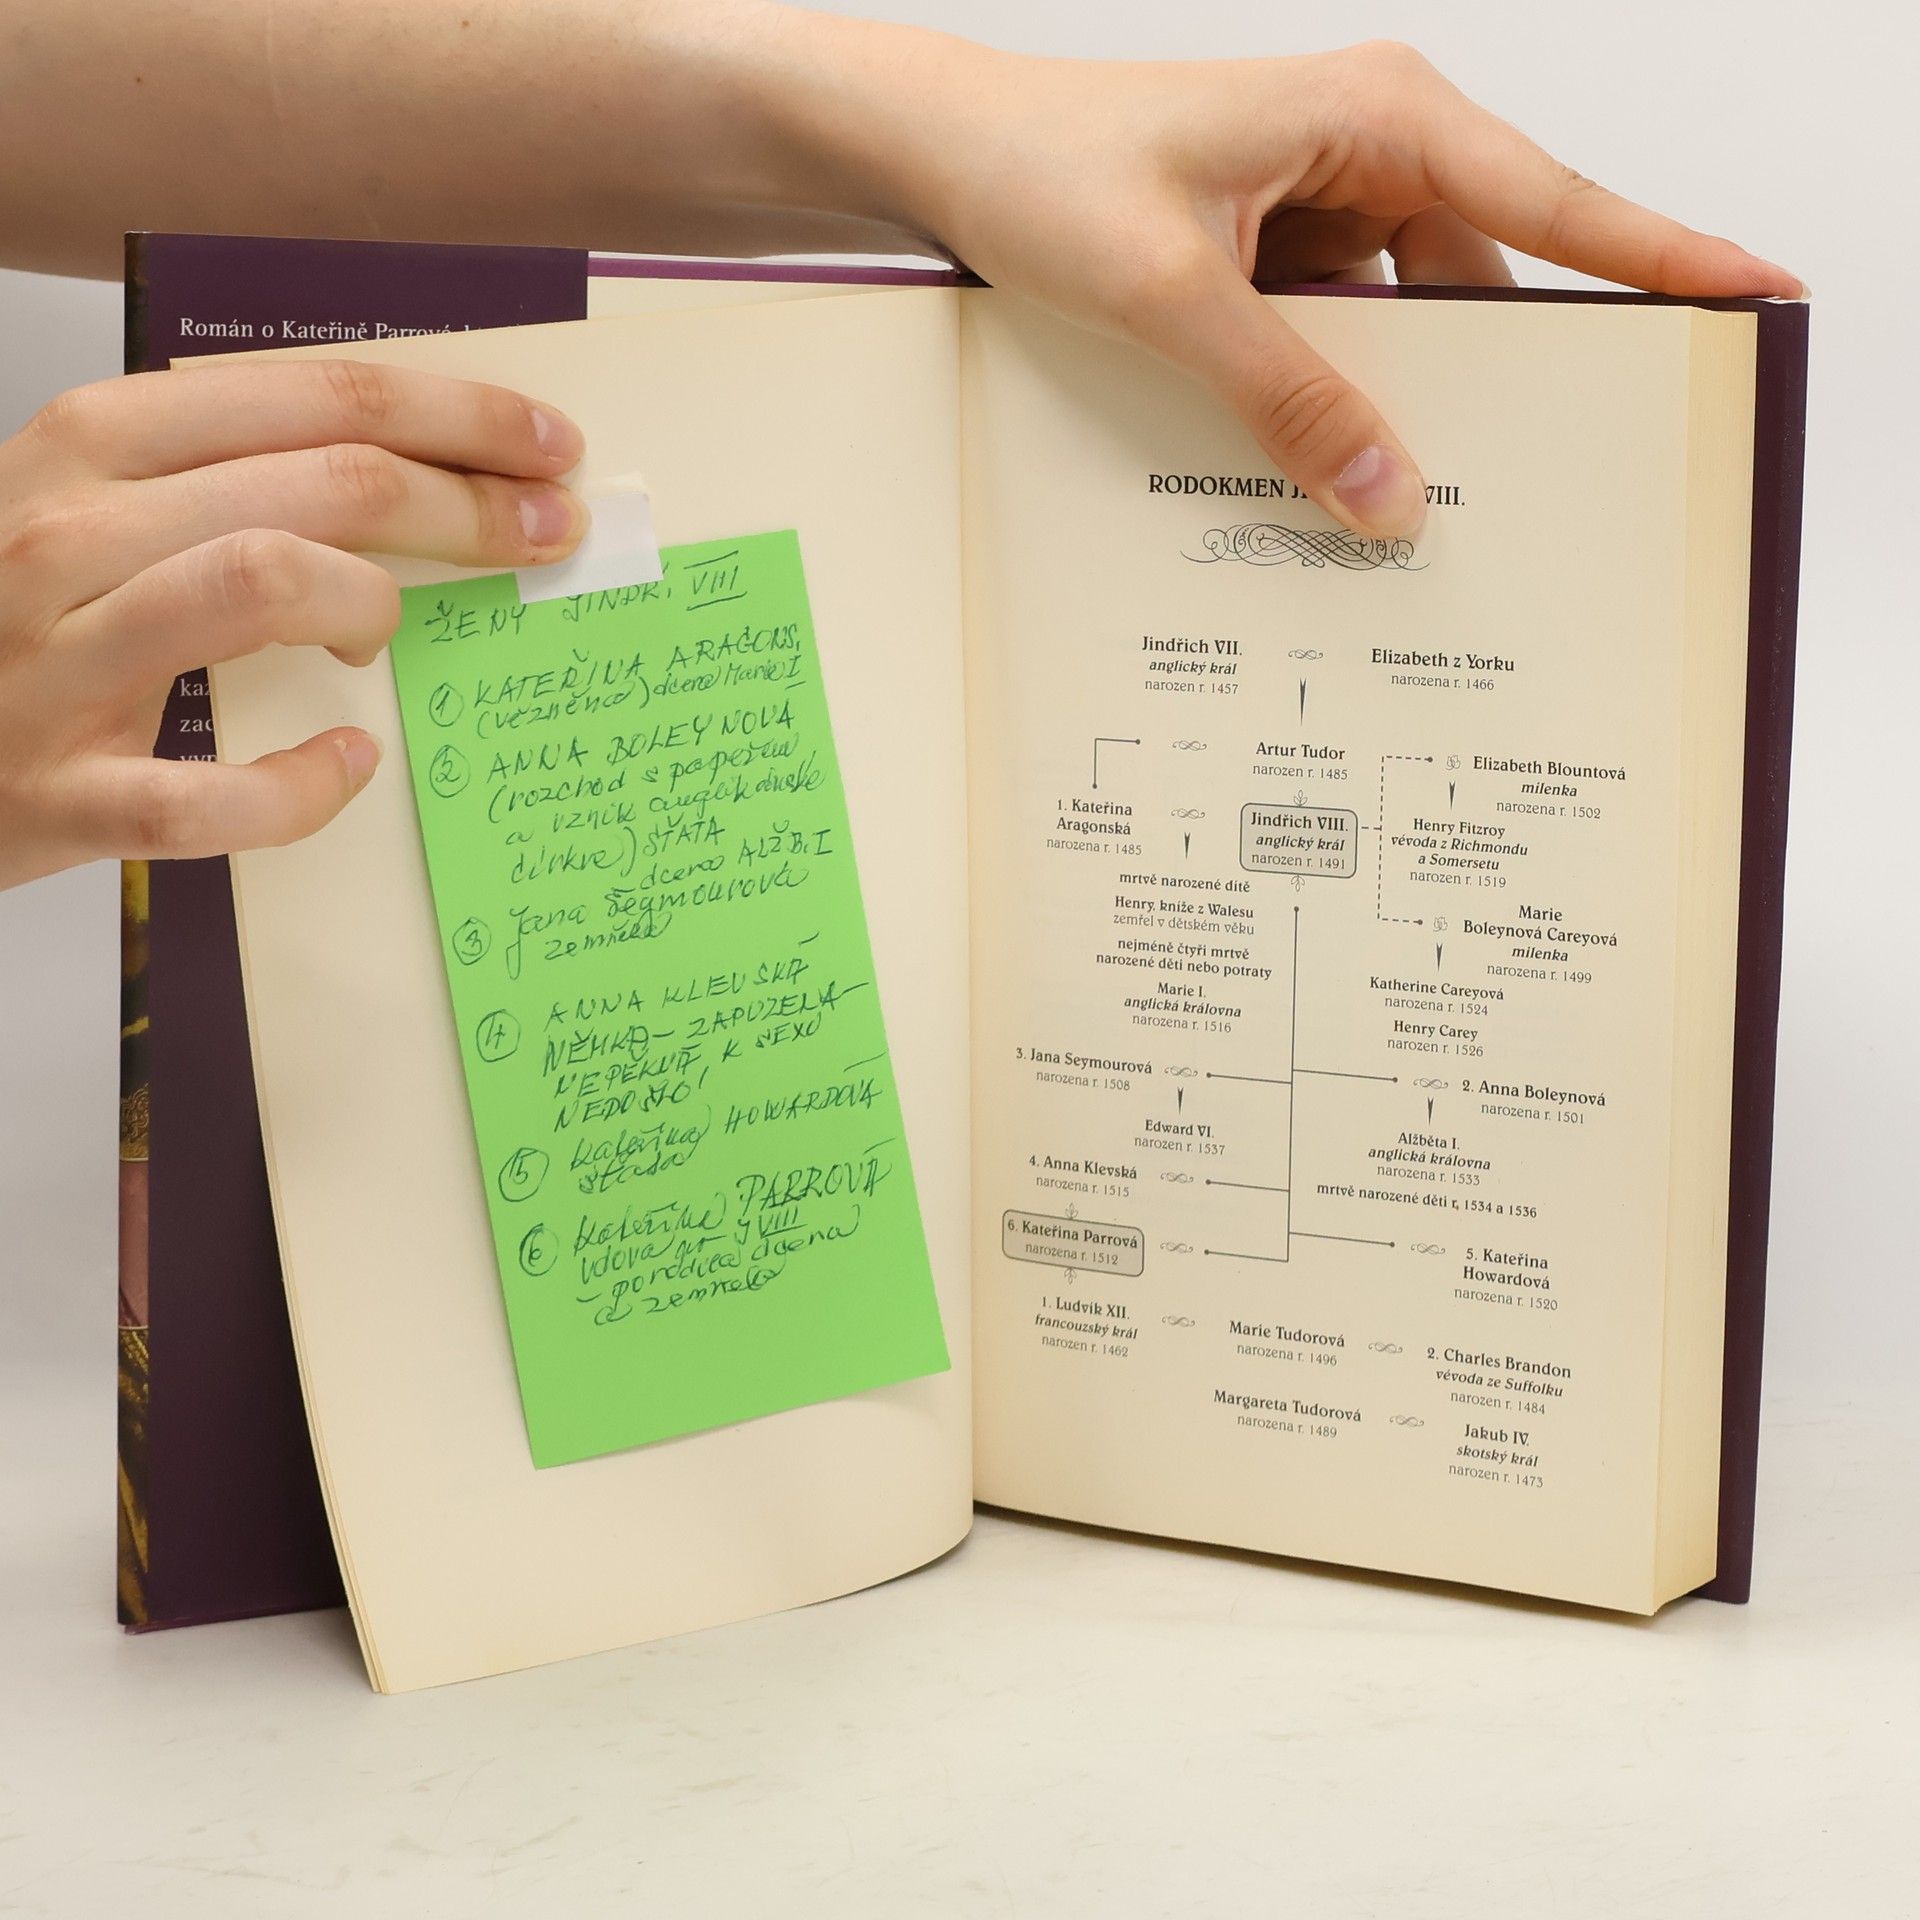 Román o Kateřině Parrové
kaz
zac
ŽENY JINDŘ. VIII
① KATEŘINA ARAGONS.
(vězněna) dcera Marie I
② ANNA BOLEYNOVÁ
(rozchod s papežem
a vznik anglikánské
církve) SŤATA
dcera ALŽB. I
③ Jana Segmourová
zemřela
④ ANNA KLEVSKÁ
NĚMKA – ZAPUZENA –
NEPĚKNÁ, K SEXU
NEDOŠLO!
⑤ Kateřina HOWARDOVÁ
sťata
⑥ Kateřina PARROVÁ
vdova po J VIII
– porodila dcena
a zemřela
RODOKMEN J VIII.
Jindřich VII.
anglický král
narozen r. 1457
Elizabeth z Yorku
narozena r. 1466
Artur Tudor
narozen r. 1485
Elizabeth Blountová
milenka
narozena r. 1502
1. Kateřina
Aragonská
narozena r. 1485
Jindřich VIII.
anglický král
narozen r. 1491
Henry Fitzroy
vévoda z Richmondu
a Somersetu
narozen r. 1519
mrtvě narozené dítě
Henry, kníže z Walesu
zemřel v dětském věku
nejméně čtyři mrtvě
narozené děti nebo potraty
Marie I.
anglická královna
narozena r. 1516
Marie
Boleynová Careyová
milenka
narozena r. 1499
Katherine Careyová
narozena r. 1524
Henry Carey
narozen r. 1526
3. Jana Seymourová
narozena r. 1508
2. Anna Boleynová
narozena r. 1501
Edward VI.
narozen r. 1537
Alžběta I.
anglická královna
narozena r. 1533
mrtvě narozené děti r. 1534 a 1536
4. Anna Klevská
narozena r. 1515
6. Kateřina Parrová
narozena r. 1512
5. Kateřina
Howardová
narozena r. 1520
1. Ludvík XII.
francouzský král
narozen r. 1462
Marie Tudorová
narozena r. 1496
2. Charles Brandon
vévoda ze Suffolku
narozen r. 1484
Margareta Tudorová
narozena r. 1489
Jakub IV.
skotský král
narozen r. 1473